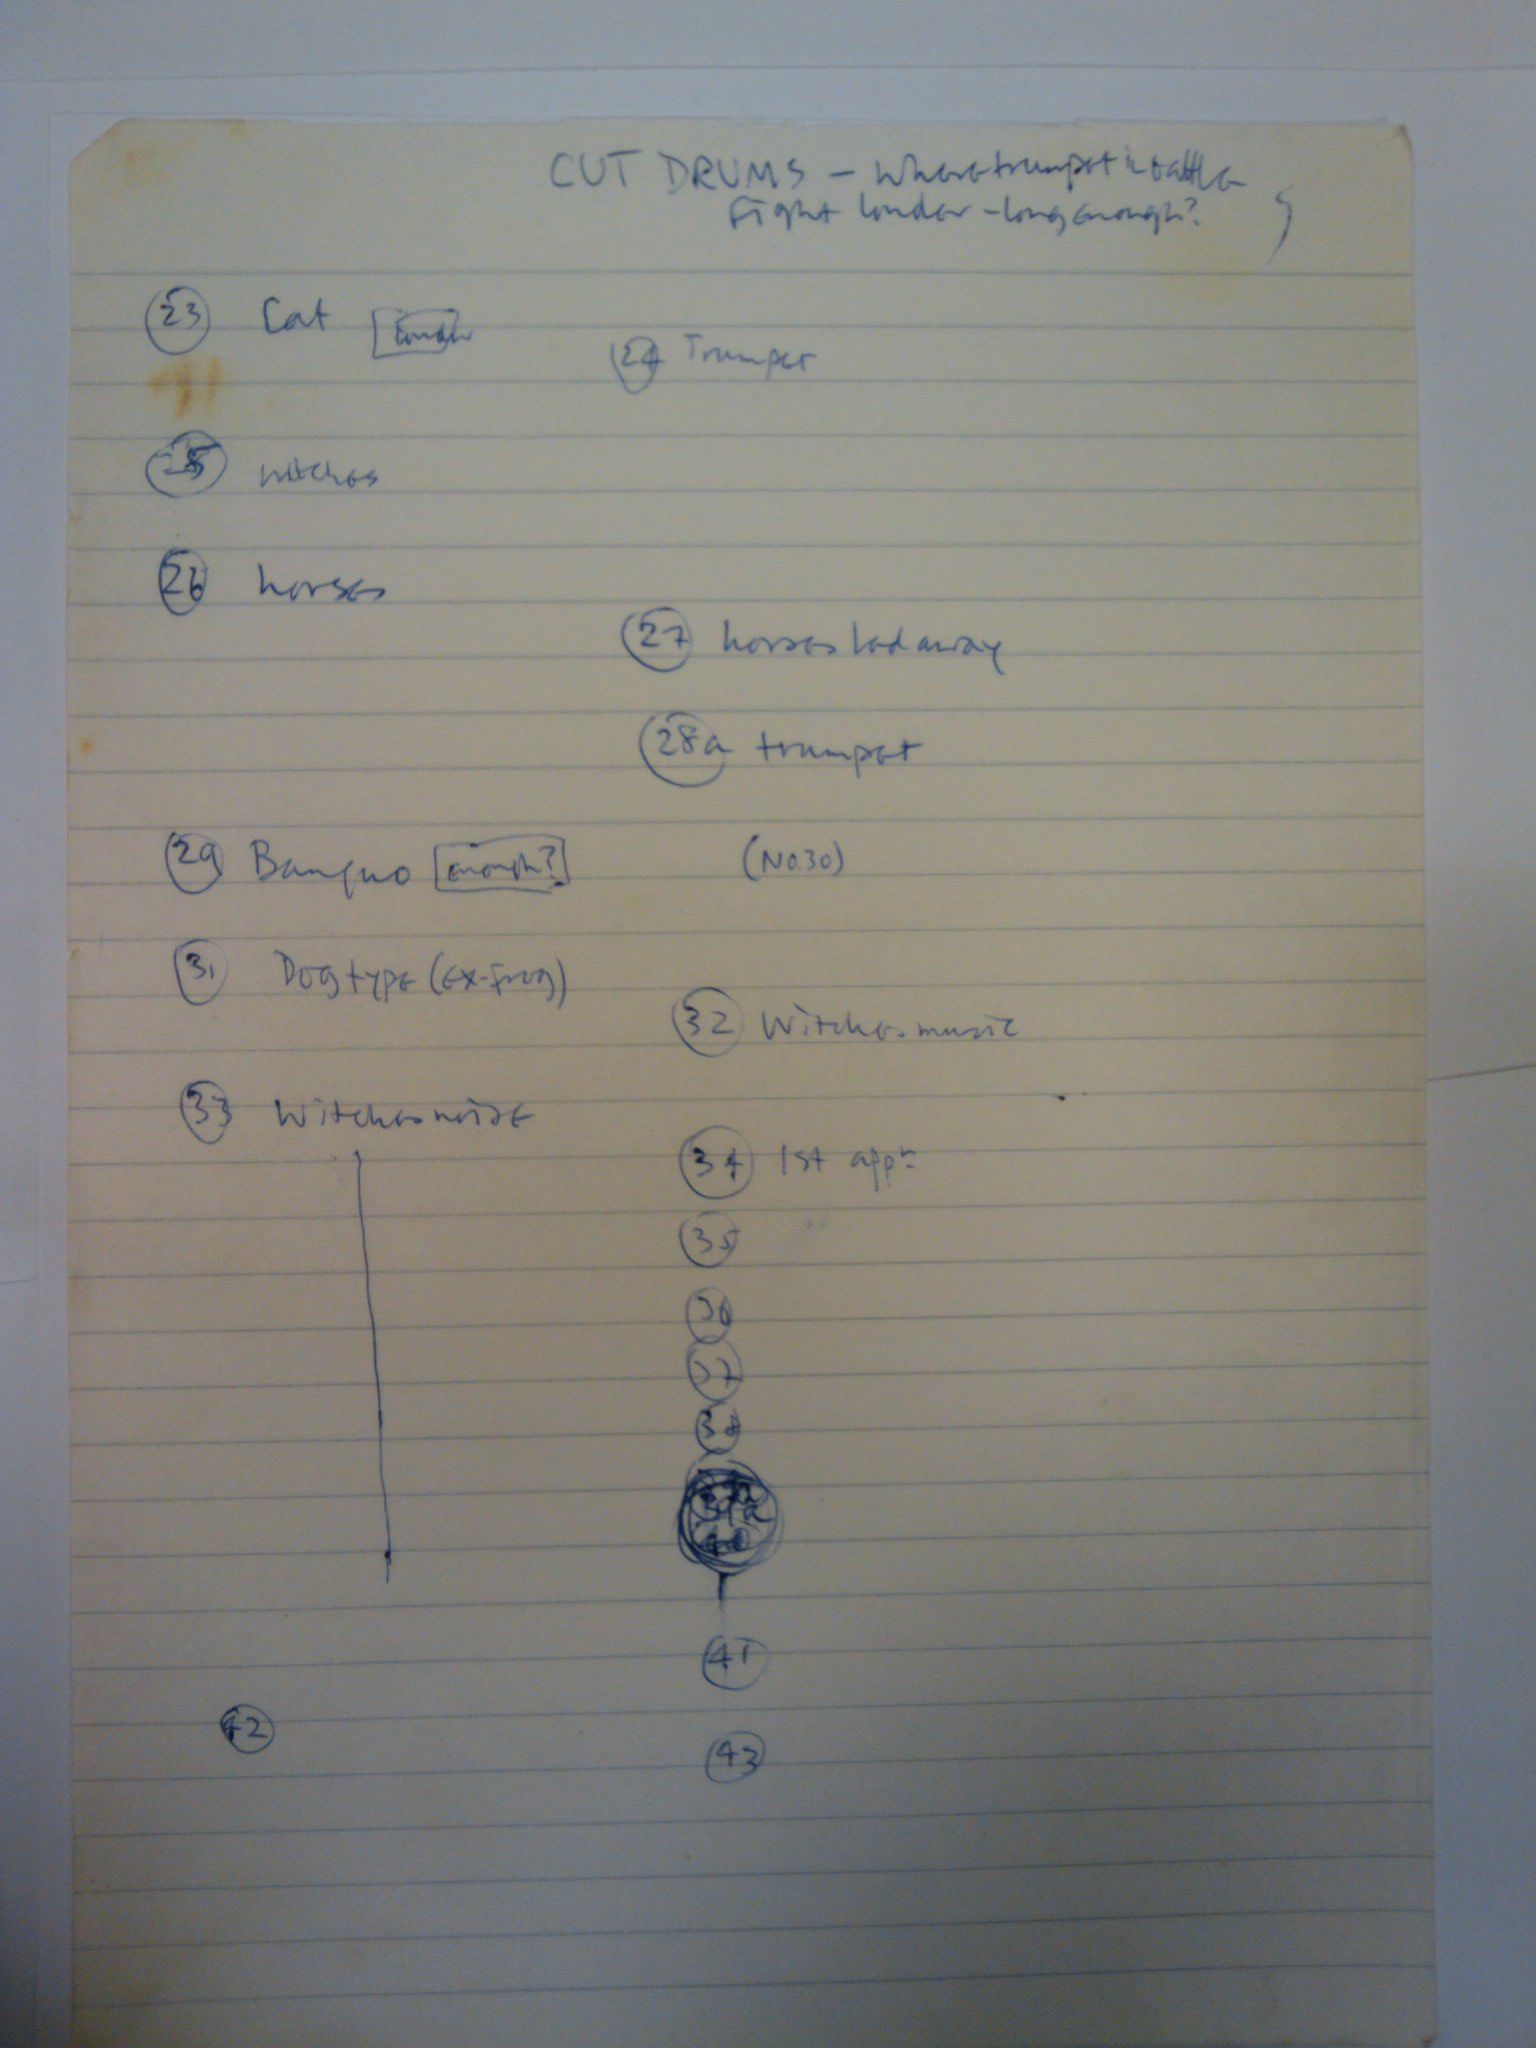 CUT DRUMS - where trumpet in battle
Fight louder - long enough?
23 Cat louder
24 Trumpet
25 witches
26 horses
27 horses led away
28a trumpet
29 Banquo enough? (No.30)
31 Dog type (ex-frog)
32 Witches music
33 Witches noise
34 1st appn
35
36
37
38
39
40
41
42
43